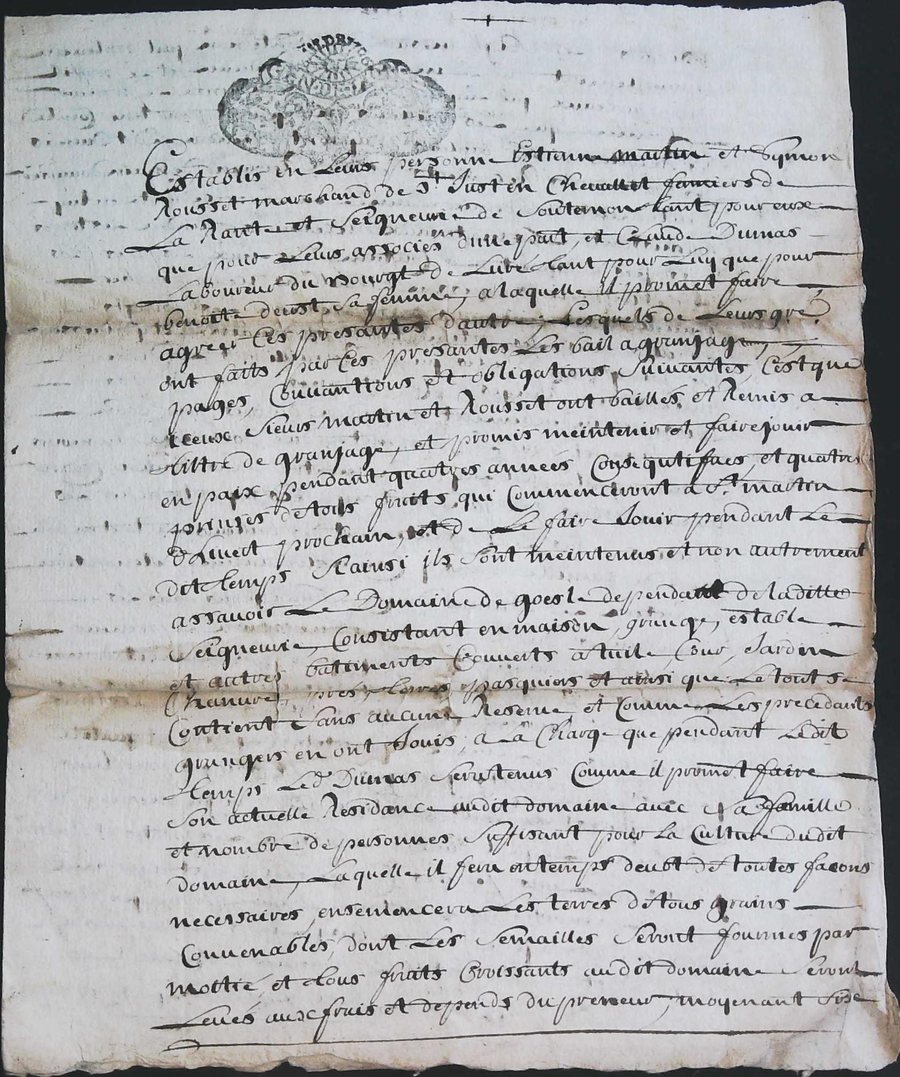 GEN. DE LION
Establis en Leurs personne Estienne martin et Symon
Rousset marchand de St Just en Chevallet famiers de
La Rante et Seigneurie de Souternon tant pour eux
que pour Leurs associés d'une part, et Claude Dumas
Laboureur du Bourgt de Luré tant pour Luy que pour
benoite deust sa femme, a laquelle il promet faire
agreer Ces presantes d'autre, Lesquels de Leurs gré
ont faits par Ces presantes Les bail a granjage,
pages, Convanttions et obligations Suivantes, C'est que
iceux Sieurs martin et Rousset ont baillés et Remis a
tittre de granjage, et promis meintenir et faire jouir
en paix pendant quatres années Consequtifues, et quatres
prinzes de tous fruits qui Commenceront a St martin
d'hivert prochain, et de Le faire Jouir pendant Le
dit temps Sainsi ils sont meintenus et non autrement
assavoir Le Domaine de goesle dependant de la ditte
Seigneurie, Consistant en maison, grange, estable
et autres batiments Couverts a tuile, Cour, Jardin
Chanure, prés, terres, pasquiers et ainsi que Le tout se
Contient sans aucune Reserue et Comme Les precedants
grangers en ont Jouis, a La Charge que pendant Ledit
temps Led. Dumas Sera tenus Comme il promet faire
Son actuelle Residance audit domaine avec Sa famille
et nombre de personnes Suffisant pour La Culture dudit
domaine, Laquelle il fera en temps deubt de toutes facons
necessaires, ensemencera Les terres de tous grains
Convenables, dont Les Semailles Seront fournies par
moitié, et tous fruits Croissants audit domaine Seront
Leués aux frais et depends du preneur, moyenant